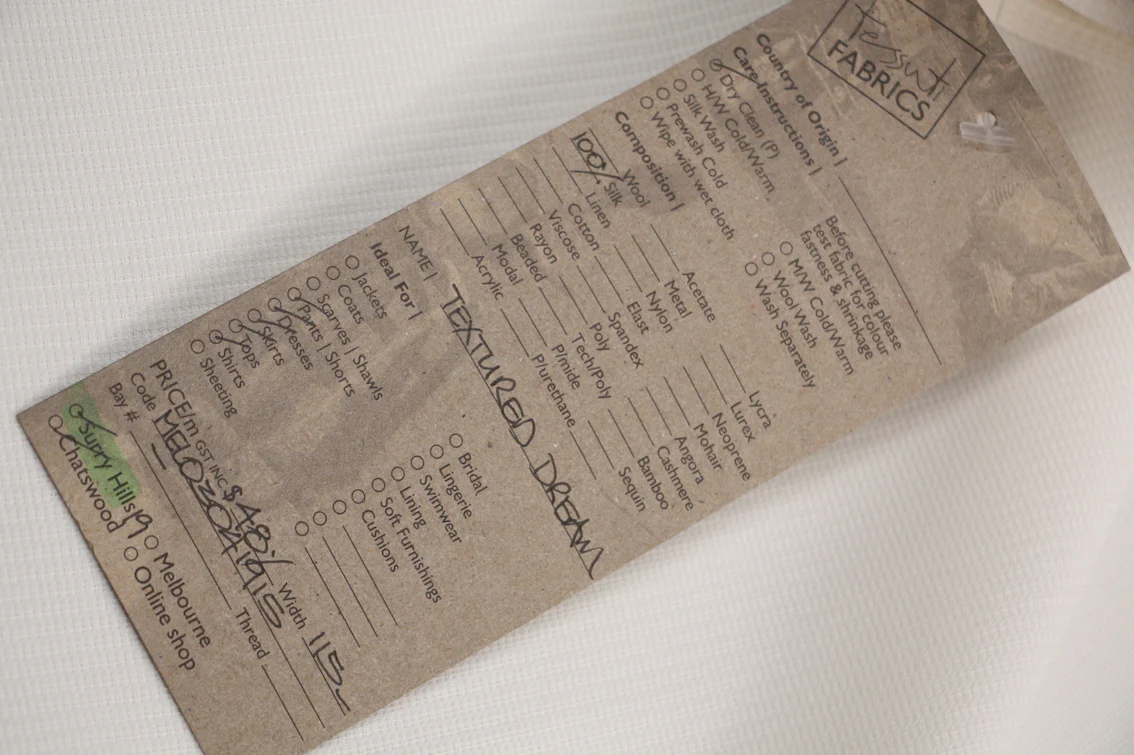 tessuti
FABRICS
Country of Origin |
Care Instructions |
Dry Clean (P)
H/W Cold/Warm
Silk Wash
Prewash Cold
Wipe with wet cloth
Before cutting please
test fabric for colour
fastness & shrinkage
M/W Cold/Warm
Wool Wash
Wash Separately
Composition |
Wool
100% Silk
Linen
Cotton
Viscose
Rayon
Beaded
Modal
Acrylic
Acetate
Metal
Nylon
Elast
Spandex
Poly
Tech/Poly
P/mide
P/urethane
Lycra
Lurex
Neoprene
Mohair
Angora
Cashmere
Bamboo
Sequin
NAME | TEXTURED DREAM
Ideal For |
Jackets
Coats
Scarves | Shawls
Pants | Shorts
Dresses
Skirts
Tops
Shirts
Sheeting
Bridal
Lingerie
Swimwear
Lining
Soft Furnishings
Cushions
PRICE/m GST INC $48 Width 115
Code
Bay # Thread
Surry Hills 19 Melbourne
Chatswood Online shop